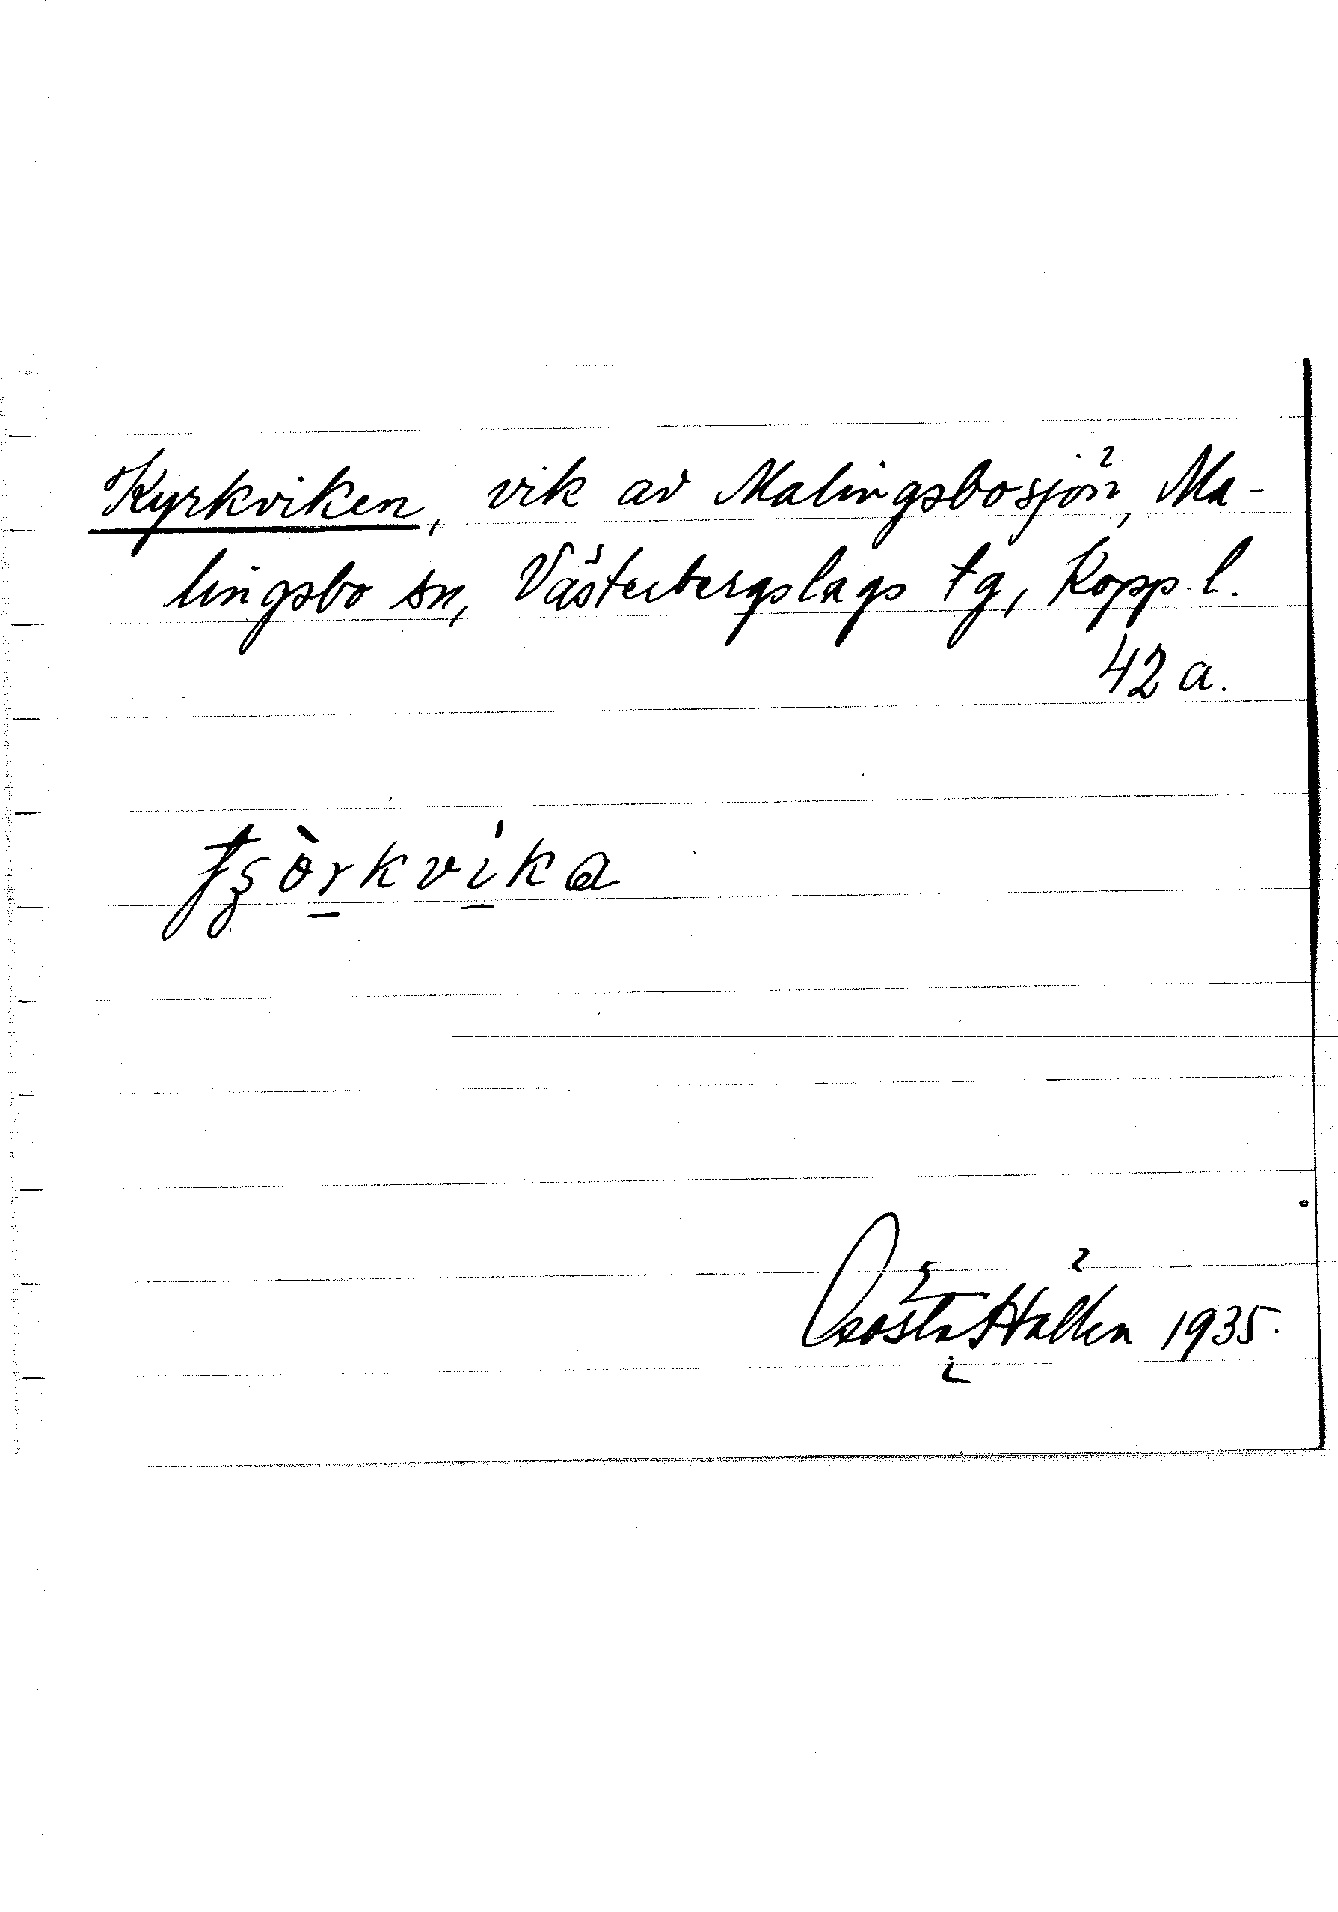 Kyrkviken, vik av Malingsbosjön, Ma-
lingsbo sn, Västerbergslags tg, Kopp. l.
42 a.
Gösta Hallén 1935.